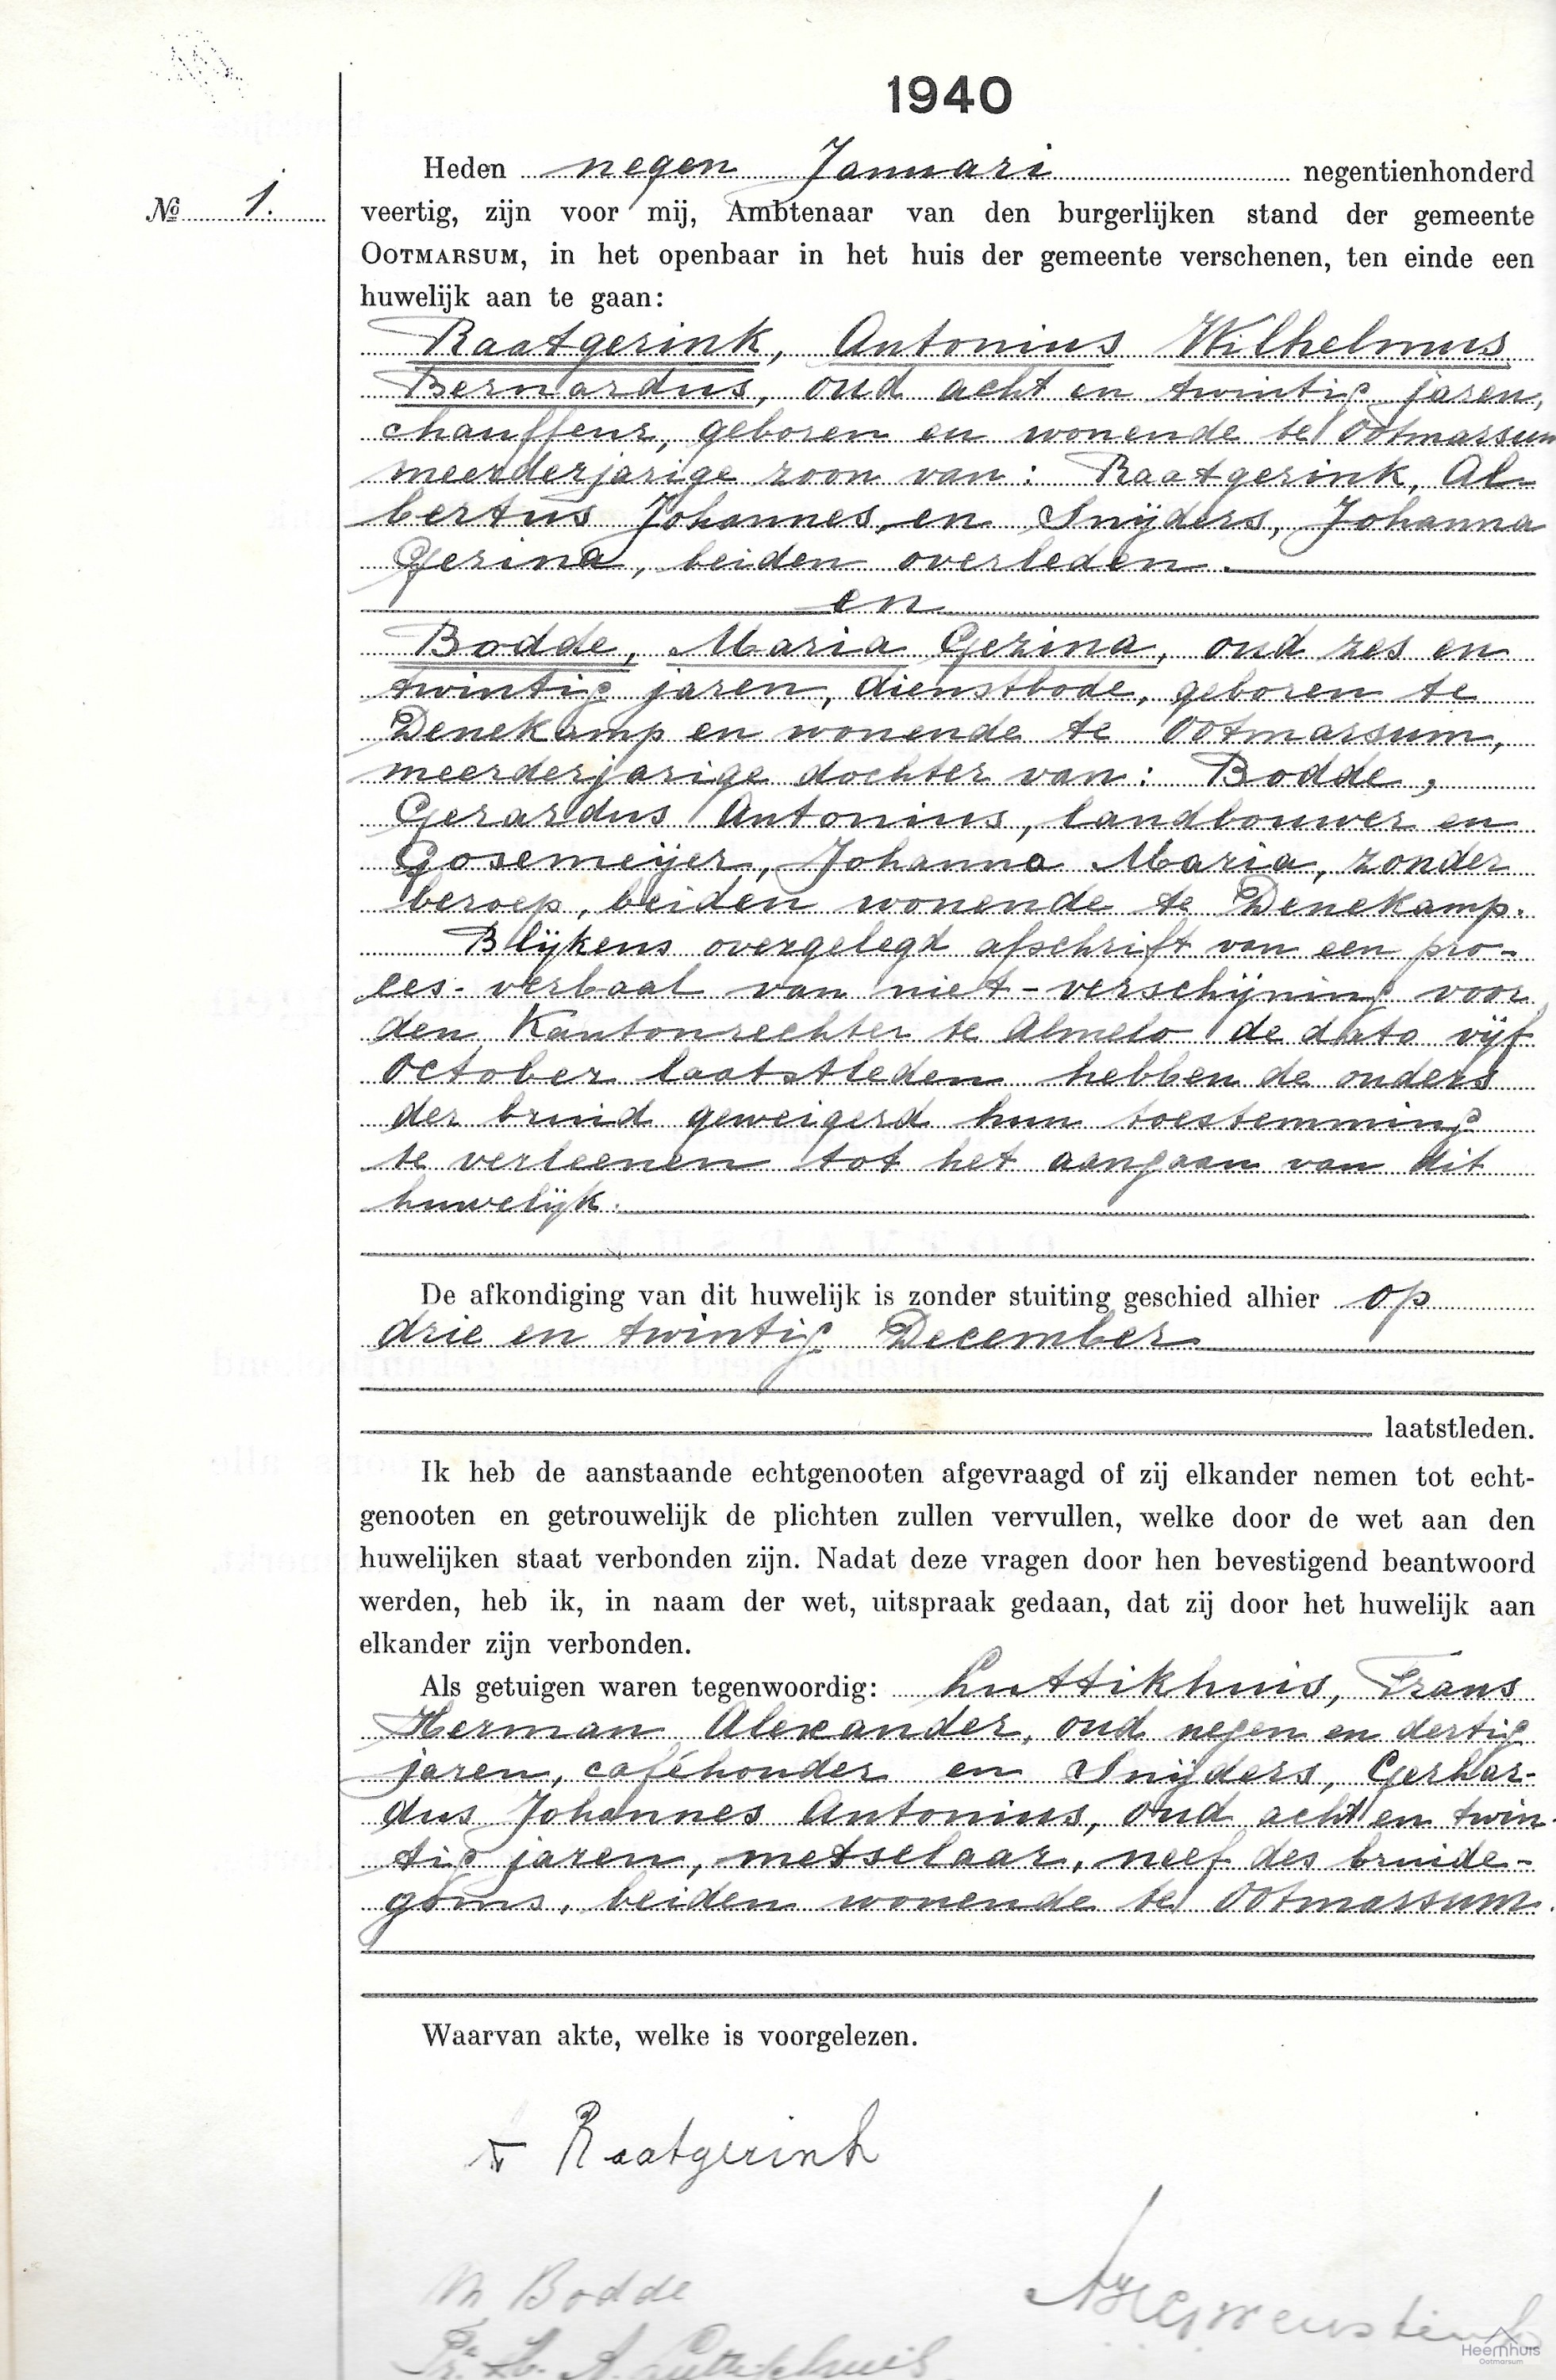 1940
Heden negen Januari negentienhonderd
No 1.
veertig, zijn voor mij, Ambtenaar van den burgerlijken stand der gemeente
OOTMARSUM, in het openbaar in het huis der gemeente verschenen, ten einde een
huwelijk aan te gaan:
Raatgerink, Antonius Wilhelmus
Bernardus, oud acht en twintig jaren,
chauffeur, geboren en wonende te Ootmarsum
meerderjarige zoon van: Raatgerink, Al-
bertus Johannes, en Snijders, Johanna
Gerina, beiden overleden.
en
Bodde, Maria Gezina, oud zes en
twintig jaren, dienstbode, geboren te
Denekamp en wonende te Ootmarsum,
meerderjarige dochter van: Bodde,
Gerardus Antonius, landbouwer en
Gosemeijer, Johanna Maria, zonder
beroep, beiden wonende te Denekamp.
Blijkens overgelegd afschrift van een pro-
ces-verbaal van niet-verschijning voor
den Kantonrechter te Almelo de dato vijf
October laatstleden hebben de ouders
der bruid geweigerd hun toestemming
te verleenen tot het aangaan van dit
huwelijk.
De afkondiging van dit huwelijk is zonder stuiting geschied alhier op
drie en twintig December
laatstleden.
Ik heb de aanstaande echtgenooten afgevraagd of zij elkander nemen tot echt-
genooten en getrouwelijk de plichten zullen vervullen, welke door de wet aan den
huwelijken staat verbonden zijn. Nadat deze vragen door hen bevestigend beantwoord
werden, heb ik, in naam der wet, uitspraak gedaan, dat zij door het huwelijk aan
elkander zijn verbonden.
Als getuigen waren tegenwoordig: Luttikhuis, Frans
Herman Alexander, oud negen en dertig
jaren, caféhouder en Snijders, Gerhar-
dus Johannes Antonius, oud acht en twin-
tig jaren, metselaar, neef des bruide-
goms, beiden wonende te Ootmarsum.
Waarvan akte, welke is voorgelezen.
Raatgerink
M Bodde
Fr. H. A. Luttikhuis
Heernhuis
Ootmarsum